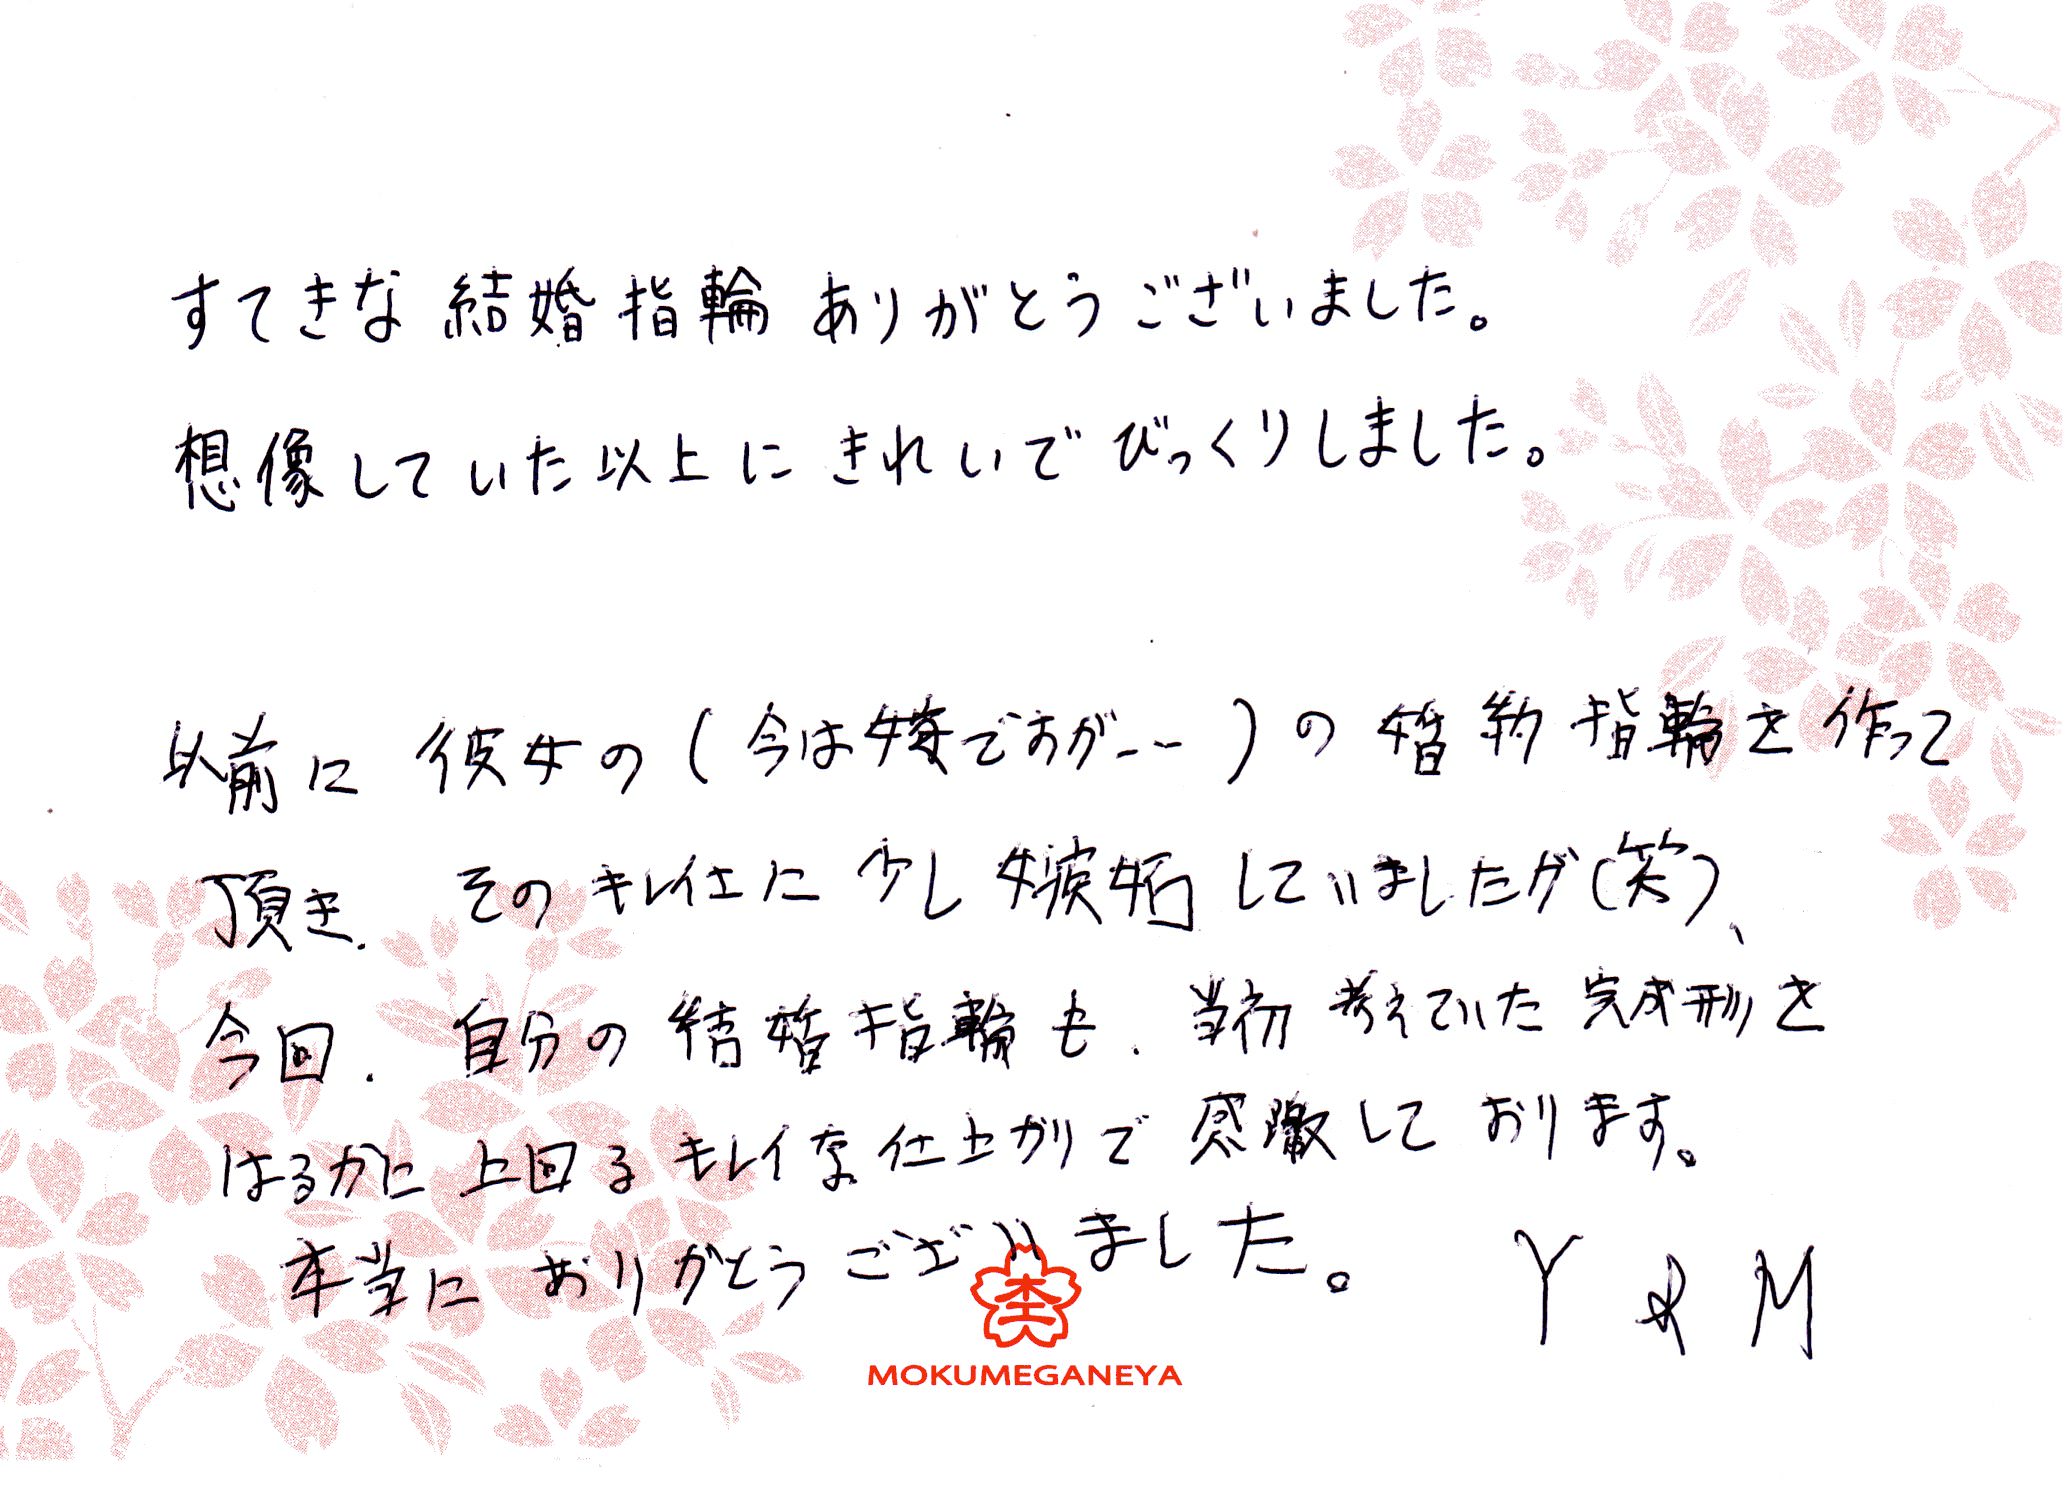 すてきな結婚指輪ありがとうございました。
想像していた以上にきれいでびっくりしました。
以前に彼女の(今は嫁ですが…)の婚約指輪を作って
頂き、そのキレイさに少し嫉妬していましたが(笑)、
今回、自分の結婚指輪も、当初考えていた完成形を
はるかに上回るキレイな仕上がりで感激しております。
本当にありがとうございました。
Y & M
MOKUMEGANEYA